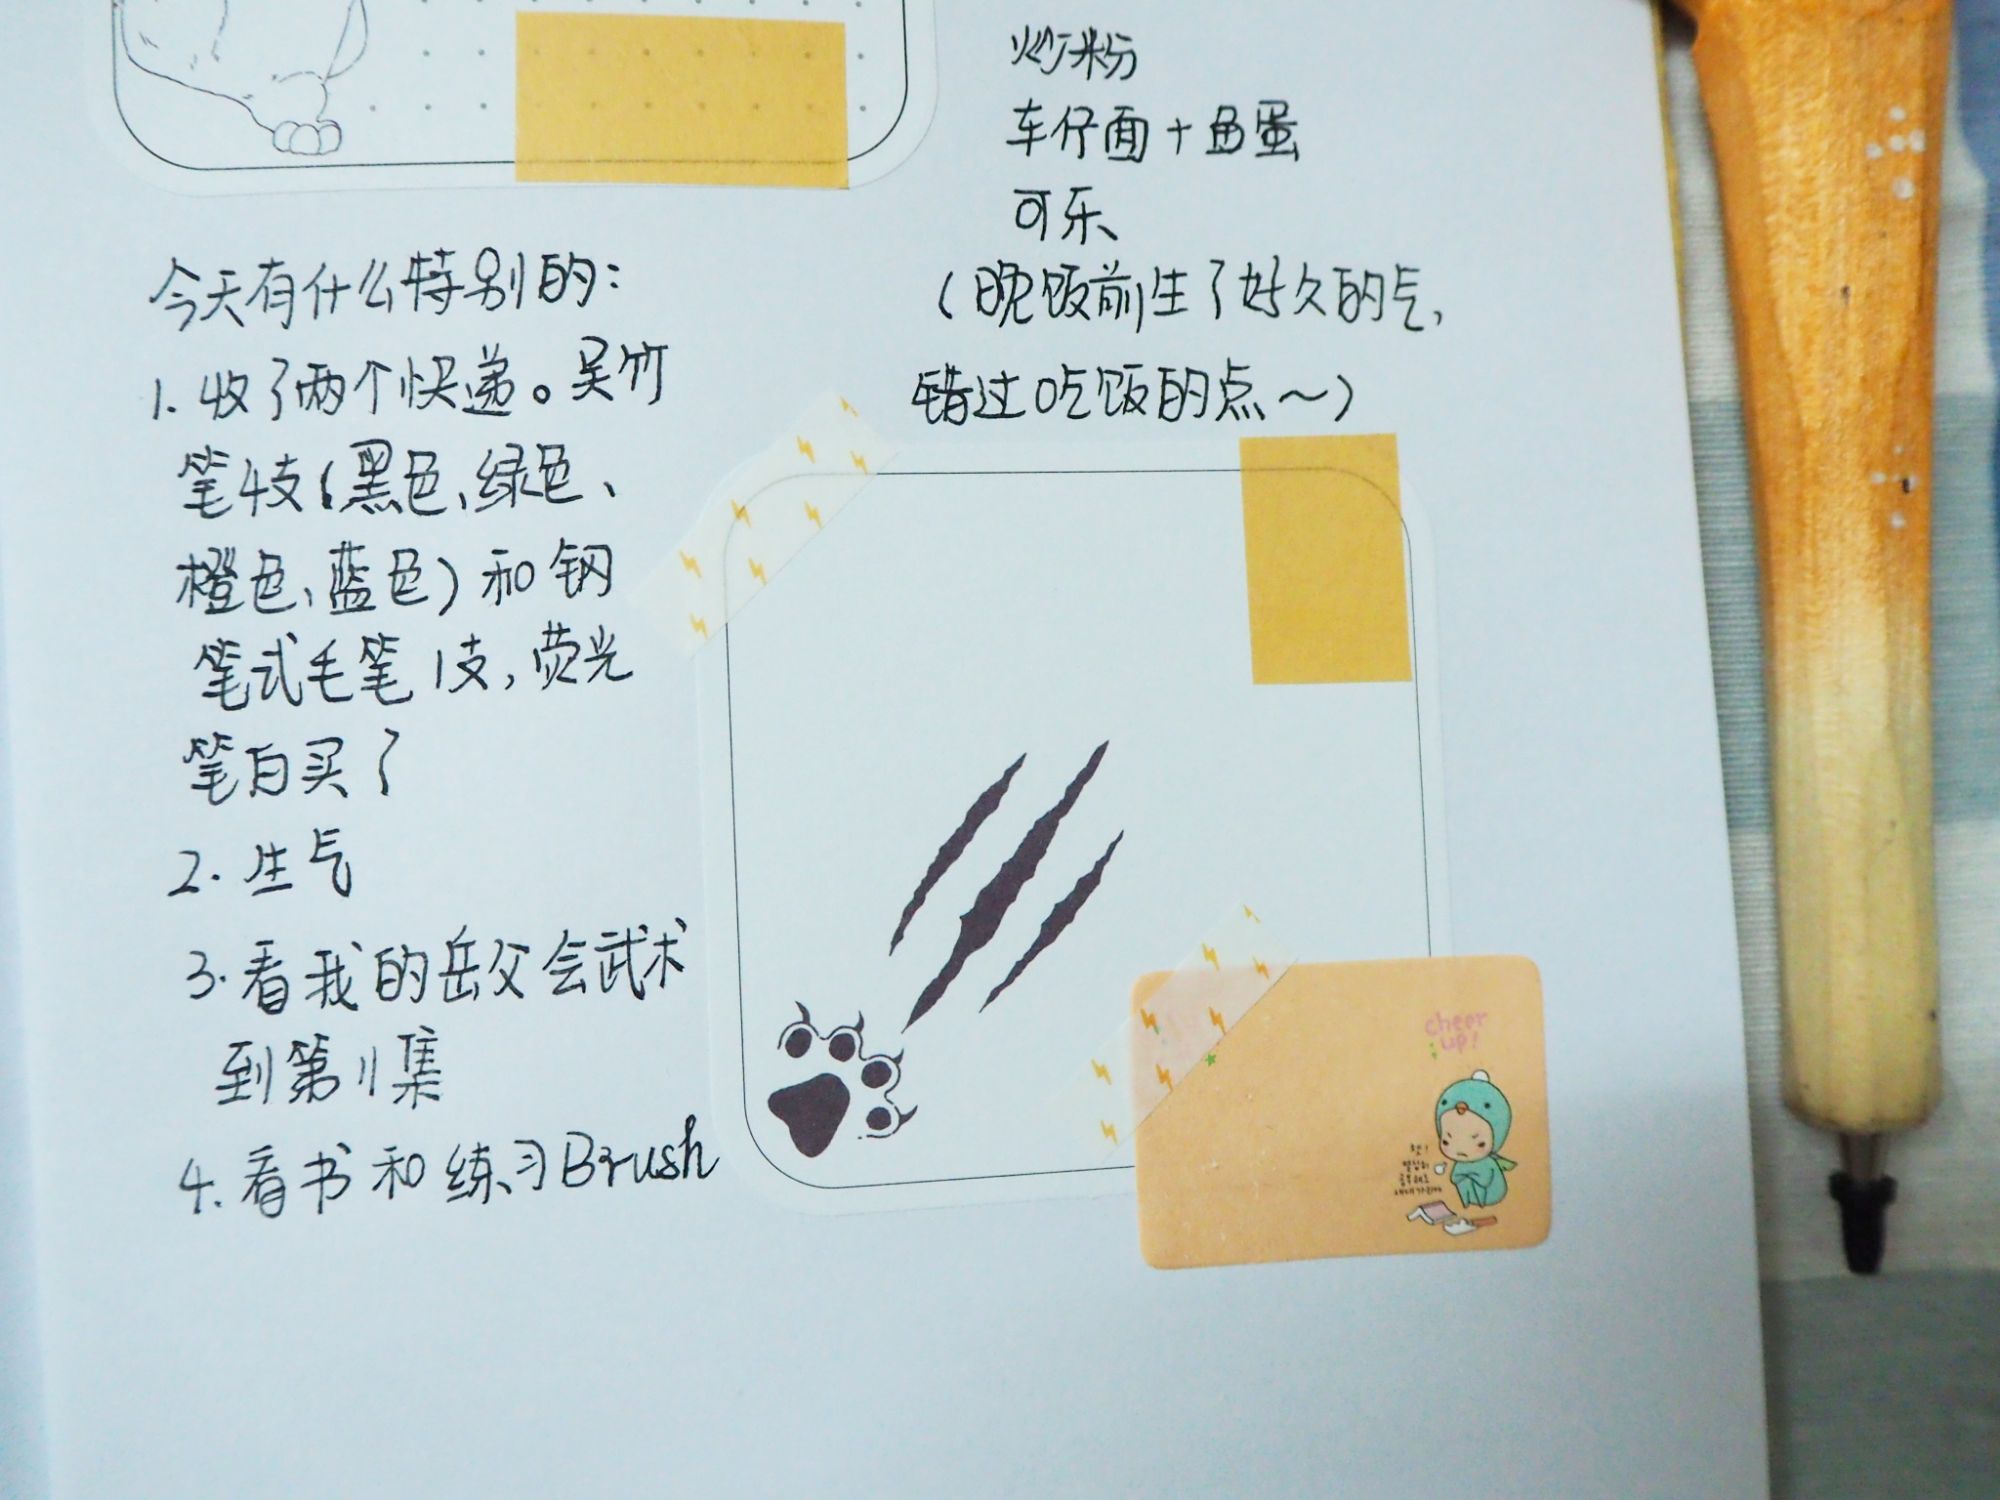 炒粉
车仔面+鱼蛋
可乐
(晚饭前生了好久的气,
错过吃饭的点~)
今天有什么特别的:
1. 收了两个快递。吴竹
笔4支(黑色、绿色、
橙色、蓝色)和钢
笔式毛笔1支,荧光
笔白买了
2. 生气
3. 看我的岳父会武术
到第11集
4. 看书和练习Brush
cheer
up!